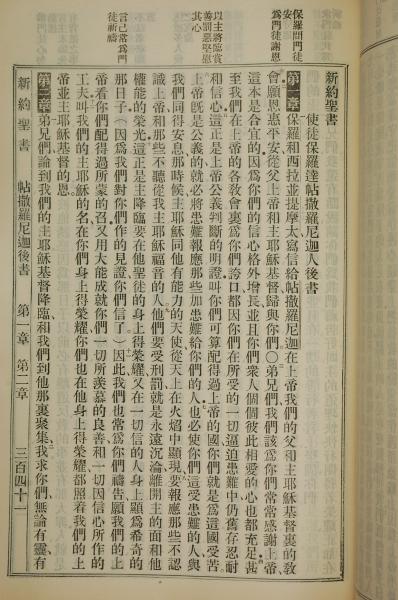 新約聖書
使徒保羅達帖撒羅尼迦人後書
第一章保羅和西拉並提摩太寫信給帖撒羅尼迦在上帝我們的父和主耶穌基督裏的敎
會願恩惠平安從父上帝和主耶穌基督歸與你們〇弟兄們我們該爲你們常常感謝上帝
這本是合宜的因爲你們的信心格外增長並且你們衆人個個彼此相愛的心也都充足甚
至我們在上帝的各敎會裏爲你們誇口都因你們在所受的一切逼迫患難中仍舊存忍耐
和信心這正是上帝公義判斷的明證叫你們可算配得過上帝的國你們就是爲這國受苦
上帝旣是公義的就必將患難報應那些加患難給你們的人也必使你們這受患難的人與
我們同得安息那時候主耶穌同他有能力的天使從天上在火焰中顯現要報應那些不認
識上帝和那些不聽從我主耶穌福音的人他們要受刑罰就是永遠沉淪離開主的面和他
權能的榮光這正是主降臨要在他聖徒的身上得榮耀又在一切信的人身上顯爲希奇的
那日子(因爲我們對你們作的見證你們信了)因此我們也常爲你們禱告願我們的上
帝看你們配得過所蒙的召又用大能成就你們一切所羨慕的良善和一切因信心所作的
工夫叫我們的主耶穌的名在你們身上得榮耀你們也在他身上得榮耀都照着我們的上
帝並主耶穌基督的恩
第二章弟兄們論到我們的主耶穌基督降臨和我們到他那裏聚集我求你們無論有靈有
新約聖書 帖撒羅尼迦後書 第一章 第二章 三百四十一
保羅問門徒
安
爲門徒謝恩
以主將臨賞
善罰惡堅慰
其心
言己常爲門
徒祈禱